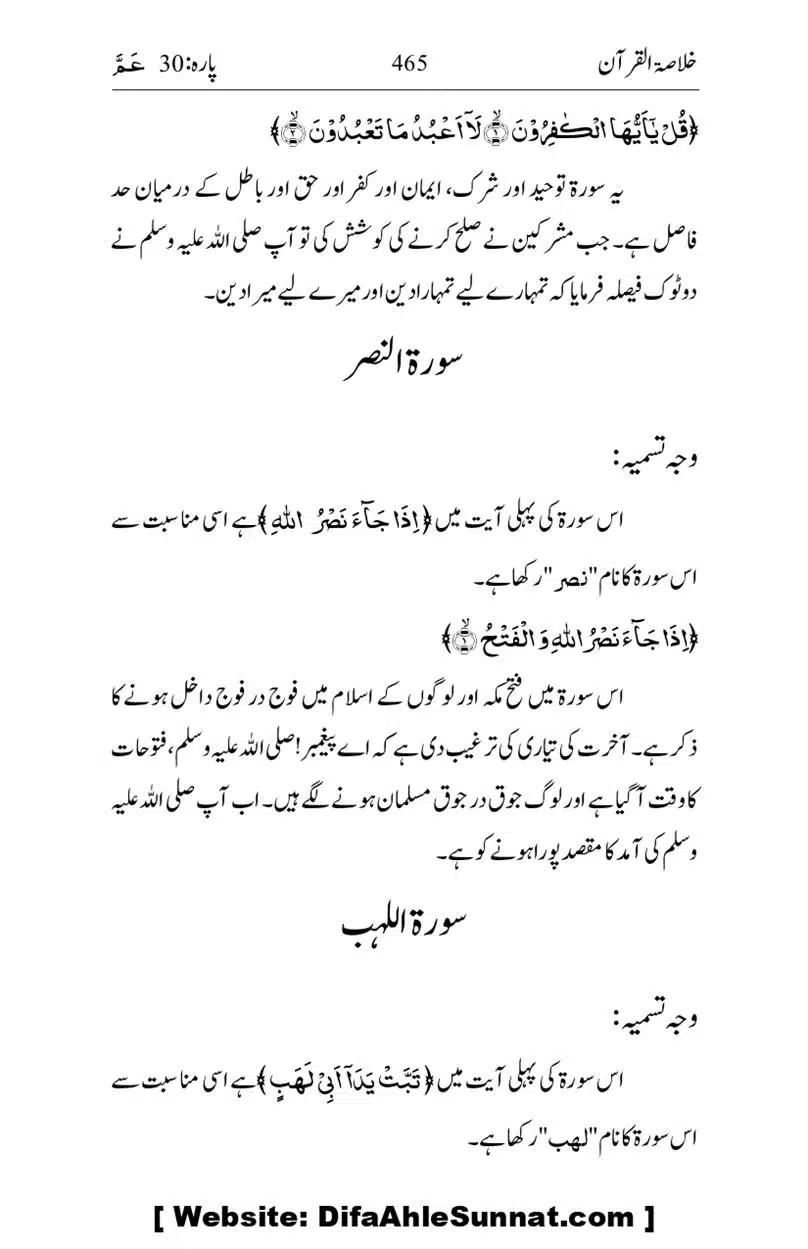 خلاصۃ القرآن 465 پارہ:30 عَمَّ
﴿قُلْ یٰۤاَیُّهَا الْكٰفِرُوْنَ ۙ﴿۱﴾ لَاۤ اَعْبُدُ مَا تَعْبُدُوْنَ ۙ﴿۲﴾﴾
یہ سورۃ توحید اور شرک، ایمان اور کفر اور حق اور باطل کے درمیان حد
فاصل ہے۔ جب مشرکین نے صلح کرنے کی کوشش کی تو آپ صلی اللہ علیہ وسلم نے
دوٹوک فیصلہ فرمایا کہ تمہارے لیے تمہارا دین اور میرے لیے میرا دین۔
سورۃ النصر
وجہ تسمیہ:
اس سورۃ کی پہلی آیت میں ﴿اِذَا جَآءَ نَصْرُ اللّٰهِ﴾ ہے اسی مناسبت سے
اس سورۃ کا نام "نصر" رکھا ہے۔
﴿اِذَا جَآءَ نَصْرُ اللّٰهِ وَ الْفَتْحُ ۙ﴿۱﴾﴾
اس سورۃ میں فتح مکہ اور لوگوں کے اسلام میں فوج در فوج داخل ہونے کا
ذکر ہے۔ آخرت کی تیاری کی ترغیب دی ہے کہ اے پیغمبر! صلی اللہ علیہ وسلم، فتوحات
کا وقت آ گیا ہے اور لوگ جوق در جوق مسلمان ہونے لگے ہیں۔ اب آپ صلی اللہ علیہ
وسلم کی آمد کا مقصد پورا ہونے کو ہے۔
سورۃ اللہب
وجہ تسمیہ:
اس سورۃ کی پہلی آیت میں ﴿تَبَّتْ یَدَاۤ اَبِیْ لَهَبٍ﴾ ہے اسی مناسبت سے
اس سورۃ کا نام "لھب" رکھا ہے۔
[ Website: DifaAhleSunnat.com ]